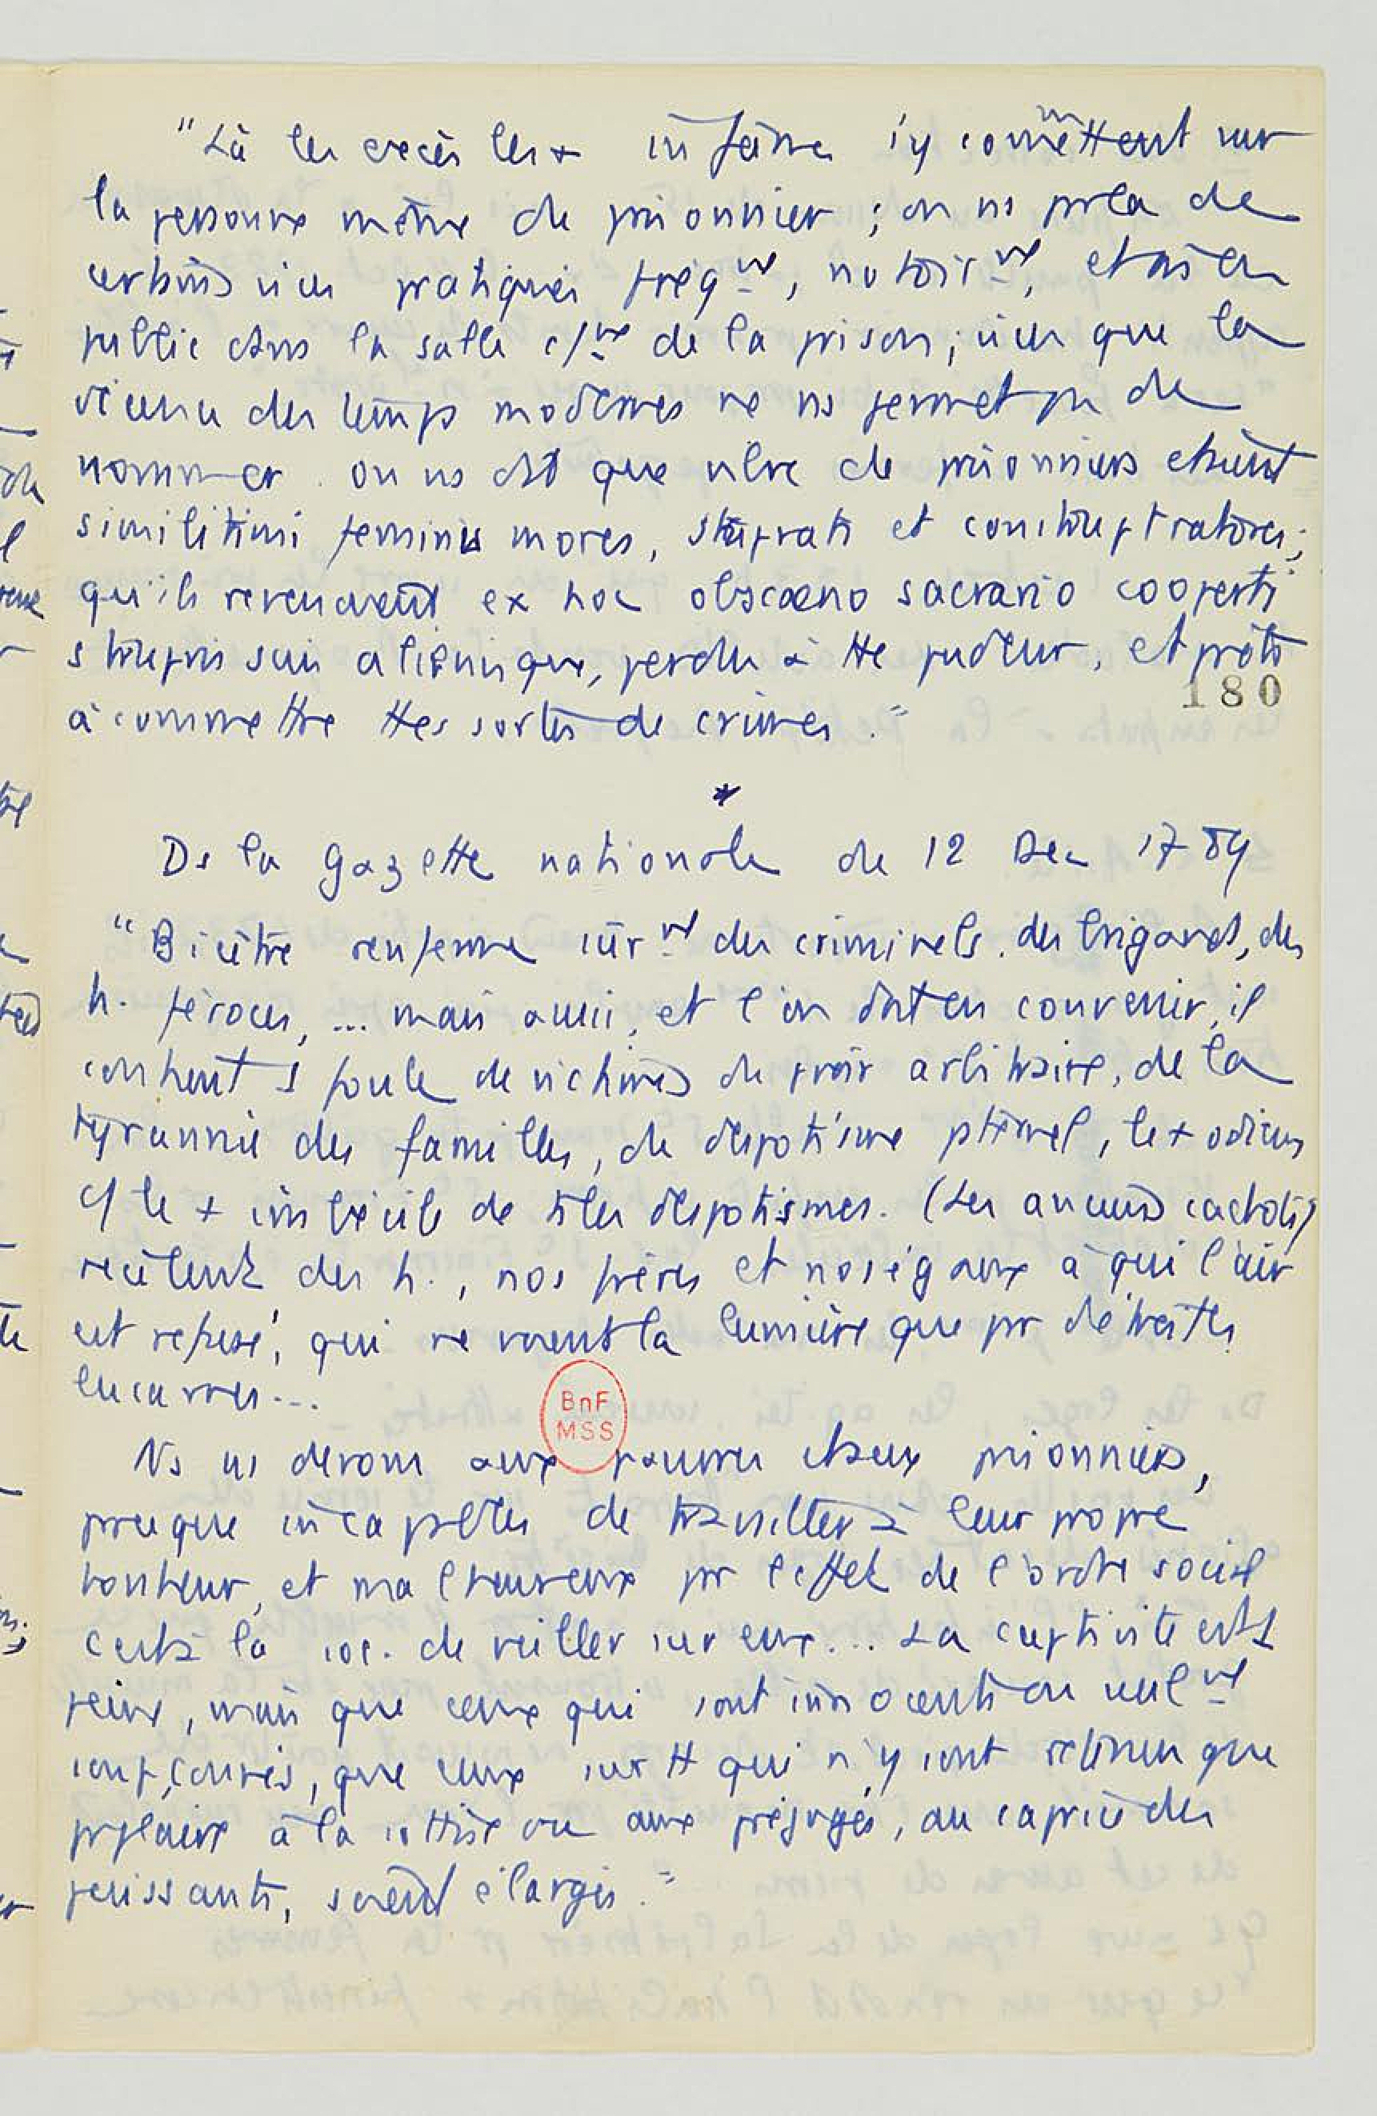 "Là les excès les + infâmes s'y commettent sur
la personne même du prisonnier ; on ns parla de
certains vices pratiqués freqmt, notoirmt, et mê en
public dans la salle c/ne de la prison, vices que la
décence des temps modernes ne ns permet pas de
nommer. on ns dit que nbre de prisonniers étaient
simillimi feminis mores, stuprati et constupratores ;
qu'ils revenaient ex hoc obscoeno sacrario cooperti
stupris suis alienisque, perdus à tte pudeur, et prêts
à commettre ttes sortes de crimes."
180
*
Ds la gazette nationale du 12 Dec 1789
"Bicêtre renferme sûrmt des criminels. des brigands, des
h. féroces, ... mais aussi, et l'on doit en convenir, il
contient 1 foule de victimes du pvoir arbitraire, de la
tyrannie des familles, du despotisme pternel, le + odieux
c/ le + imbécile de ts les despotismes. (Les anciens cachots)
recèlent des h., nos frères et nos égaux à qui l'air
est refusé, qui ne voient la lumière que pr de traites
lucarnes...
BnF
MSS
Ns devons aux pauvres prisonniers,
presque incapables de travailler à leur propre
bonheur, et malheureux pr l'effet de l'ordre social
c'est à la soc. de veiller sur eux... La captivité est 1
peine, mais que ceux qui sont innocents ou seulmt
soupçonnés, que ceux surtt qui n'y sont retenus que
pr plaire à la sottise ou aux préjugés, au caprice des
puissants, soient élargis."